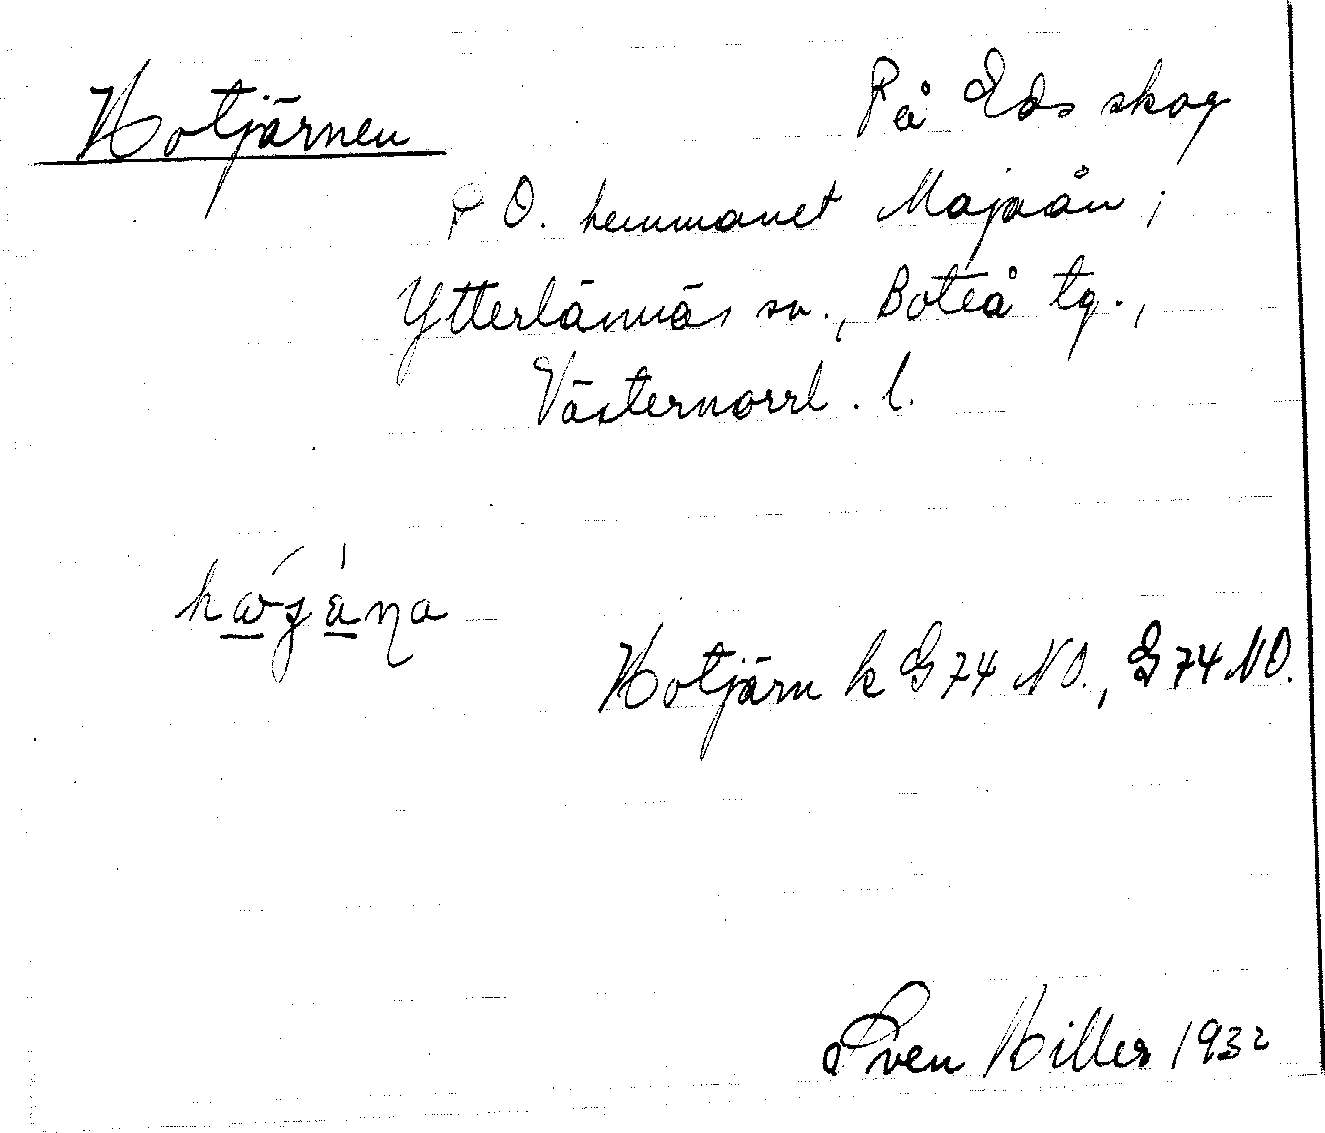 Hotjärnen
På Eds skog
f O. hemmanet Majaån;
Ytterlännäs sn., Boteå tg.,
Västernorrl. l.
Hotjärn k G 74 NO., G 74 NO.
Sven Hiller 1932